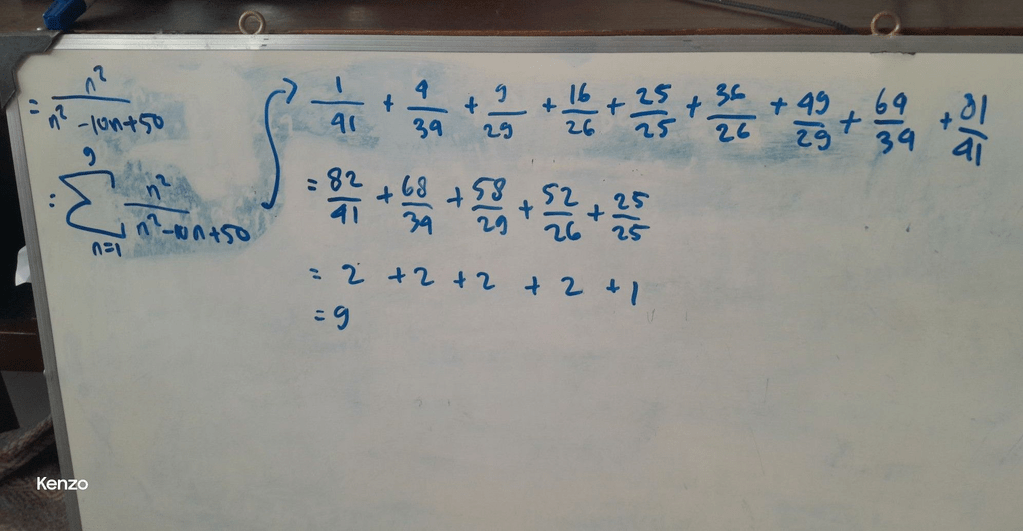 = n² / (n² - 10n + 50)
: 9 Σ n=1 n² / (n² - 10n + 50)
1/41 + 4/34 + 9/29 + 16/26 + 25/25 + 36/26 + 49/29 + 64/34 + 81/41
= 82/41 + 68/34 + 58/29 + 52/26 + 25/25
= 2 + 2 + 2 + 2 + 1
= 9
Kenzo